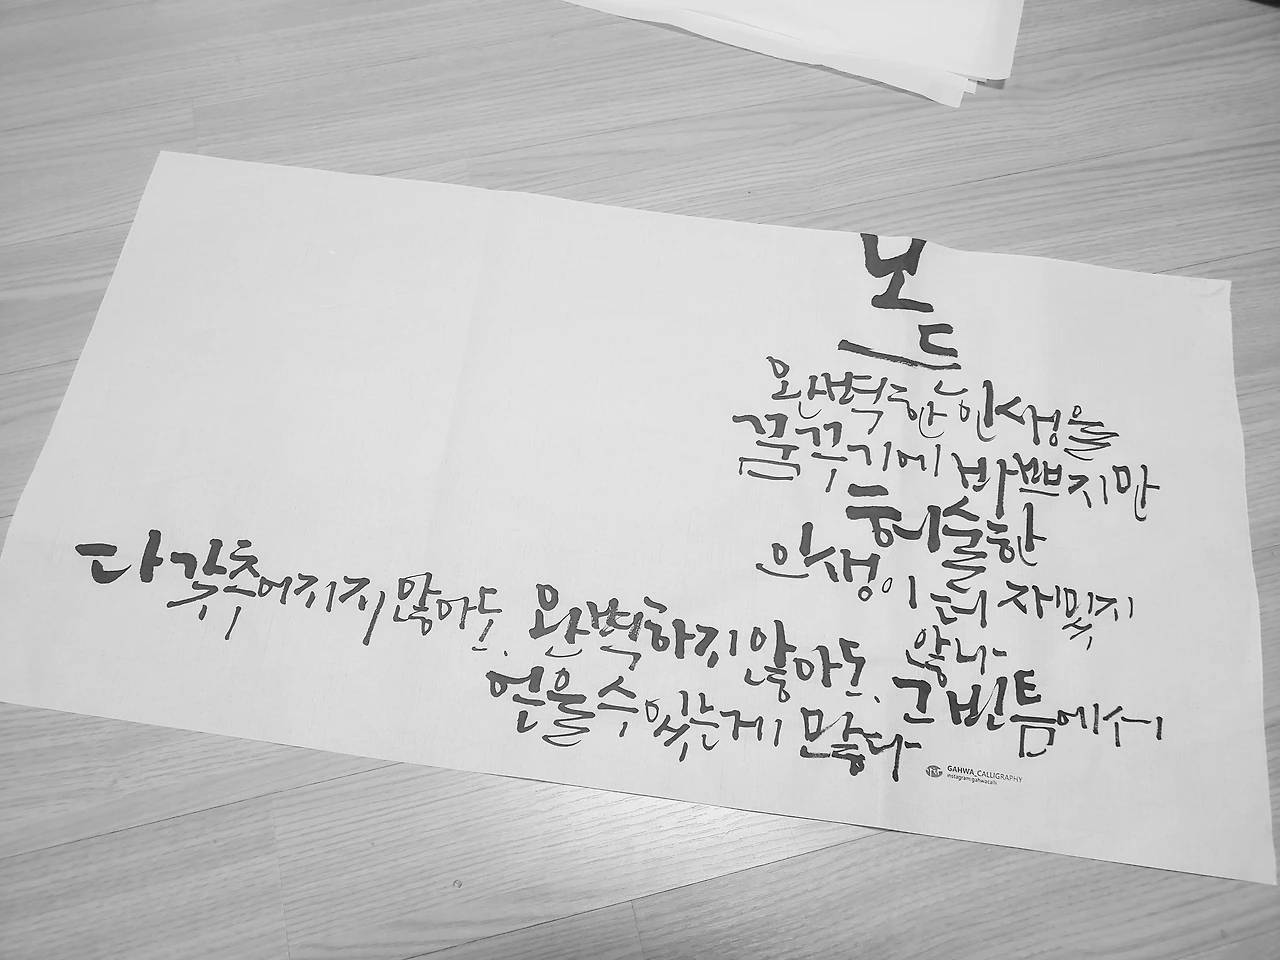 완벽한 인생을
꿈꾸기에 바쁘지만
허술한
인생이 더 재밌지
않나
다 갖추어지지 않아도, 완벽하지 않아도, 그 빈틈에서
얻을 수 있는게 많다
GAHWA_CALLIGRAPHY
instagram:gahwacalli